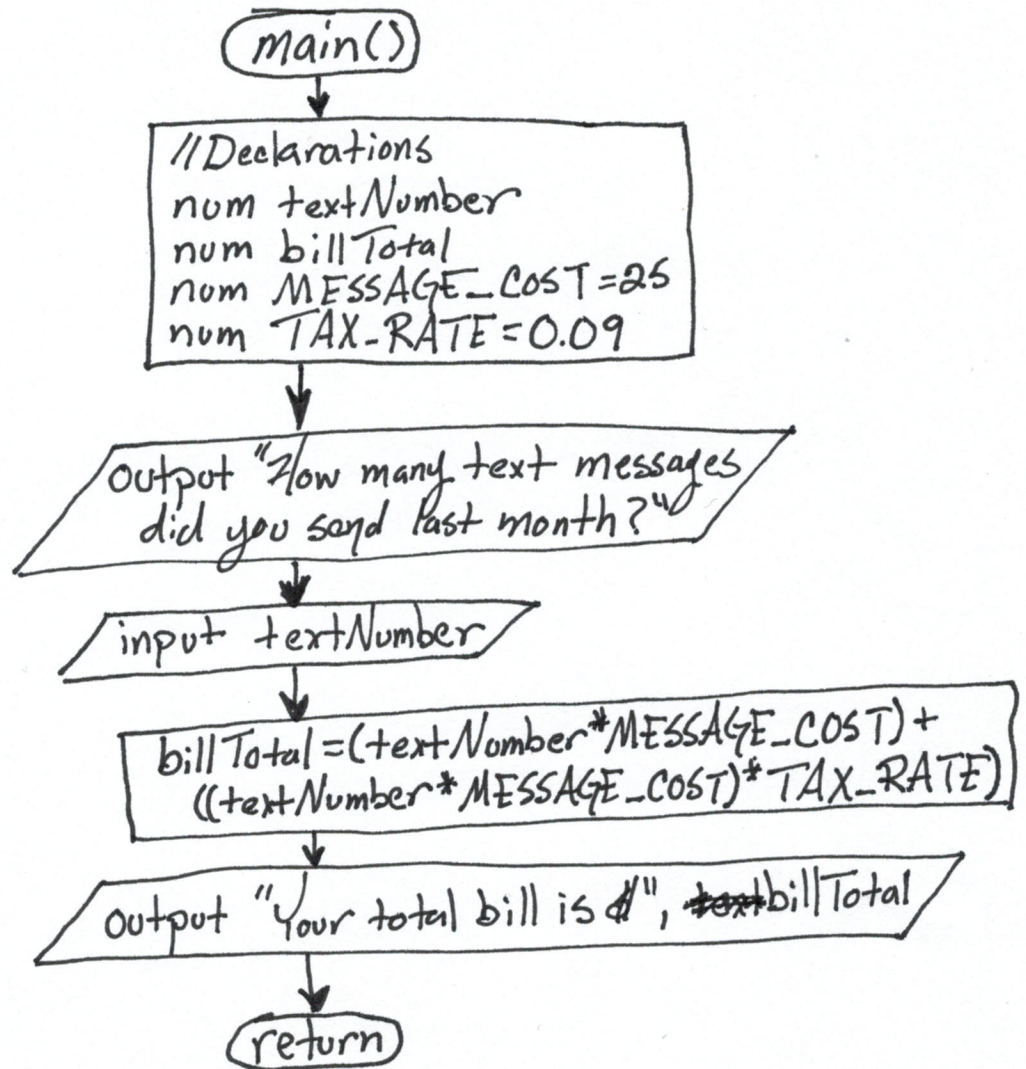 main()
//Declarations
num textNumber
num billTotal
num MESSAGE_COST=25
num TAX_RATE=0.09
output "How many text messages
did you send last month?"
input textNumber
billTotal=(textNumber*MESSAGE_COST)+
((textNumber*MESSAGE_COST)*TAX_RATE)
output "Your total bill is $", billTotal
return